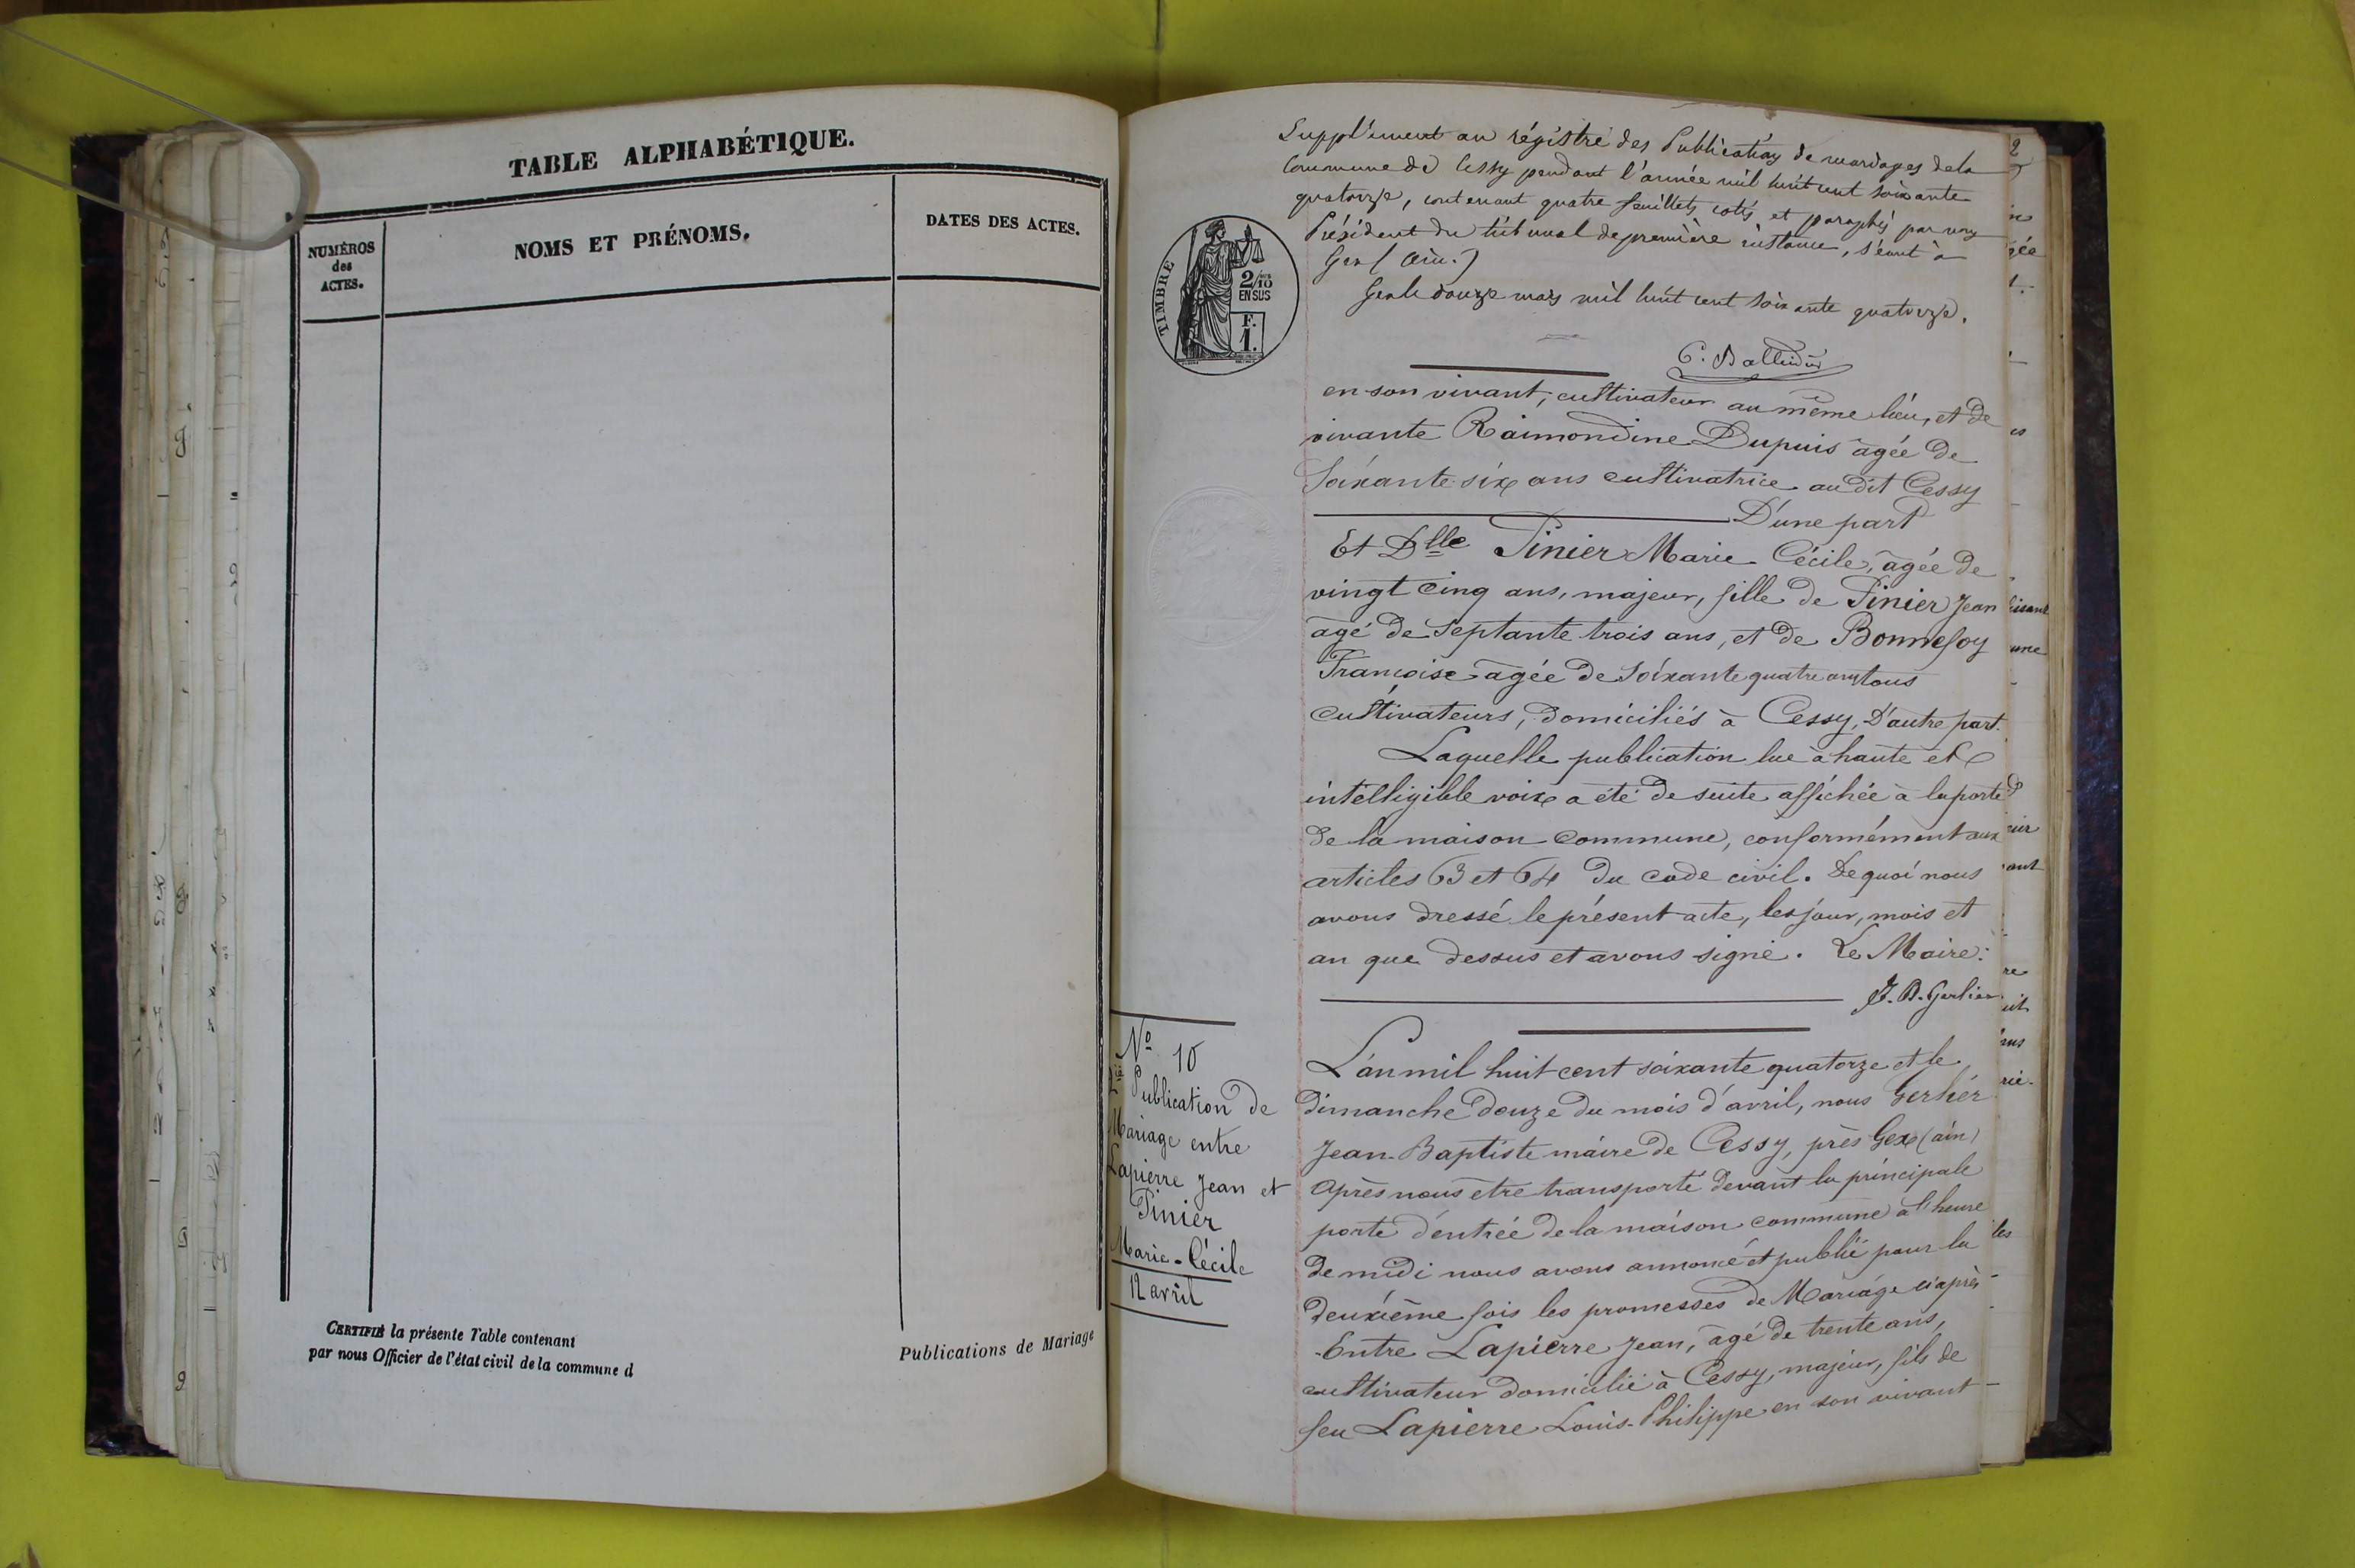 TABLE ALPHABÉTIQUE.
NUMÉROS
des
ACTES.
NOMS ET PRÉNOMS.
DATES DES ACTES.
CERTIFIÉ la présente Table contenant
par nous Officier de l'état civil de la commune d
Publications de Mariage
Supplément au régistre des Publications de mariages de la
Commune de Cessy pendant l'année mil huit cent soixante
quatorze, contenant quatre feuillets cotés et paraphés par nous
Président du tribunal de première instance, séant à
Gex (Ain.)
Gex le douze mars mil huit cent soixante quatorze.
TIMBRE
2/10
EN SUS
F.
1.
en son vivant, cultivateur au même lieu, et de
vivante Raimondine Dupuis âgée de
Soixante six ans cultivatrice au dit Cessy
D'une part
Et Dlle Pinier Marie Cécile, âgée de
vingt cinq ans, majeur, fille de Pinier Jean
âgé de Septante trois ans, et de Bonnefoy
Françoise âgée de Soixante quatre ans tous
cultivateurs, domiciliés à Cessy, D'autre part.
Laquelle publication lue à haute et
intelligible voix a été de suite affichée à la porte
de la maison commune, conformément aux
articles 63 et 64 du code civil. De quoi nous
avons dressé le présent acte, les jour, mois et
an que dessus et avons signé. Le Maire:
J. B. Gerlier
No 10
Publication de
Mariage entre
Lapierre Jean et
Pinier
Marie-Cécile
12 avril
L'an mil huit cent soixante quatorze et le
dimanche douze du mois d'avril, nous Gerlier
Jean-Baptiste maire de Cessy, près Gex (ain)
Après nous être transporté devant la principale
porte d'entrée de la maison commune à l'heure
de midi nous avons annoncé et publié pour la
deuxième fois les promesses de Mariage ci après
Entre Lapierre Jean, âgé de trente ans,
cultivateur domicilié à Cessy, majeur, fils de
feu Lapierre Louis-Philippe en son vivant